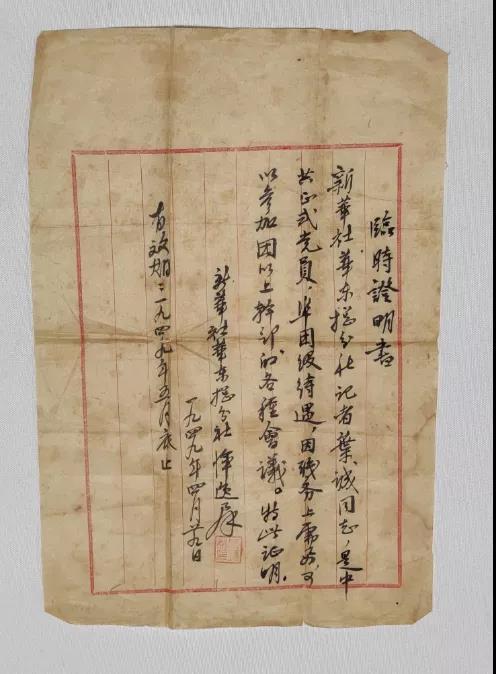 臨時證明書
新華社華东揔分社记者葉诚同志，是中
共正式党員，準团级待遇，因職务上需要，可
以参加团以上幹部的各種會議。特此证明。
新華社華东揔分社 惲逸羣
一九四九年四月廿九日
有效期：一九四九年五月底止